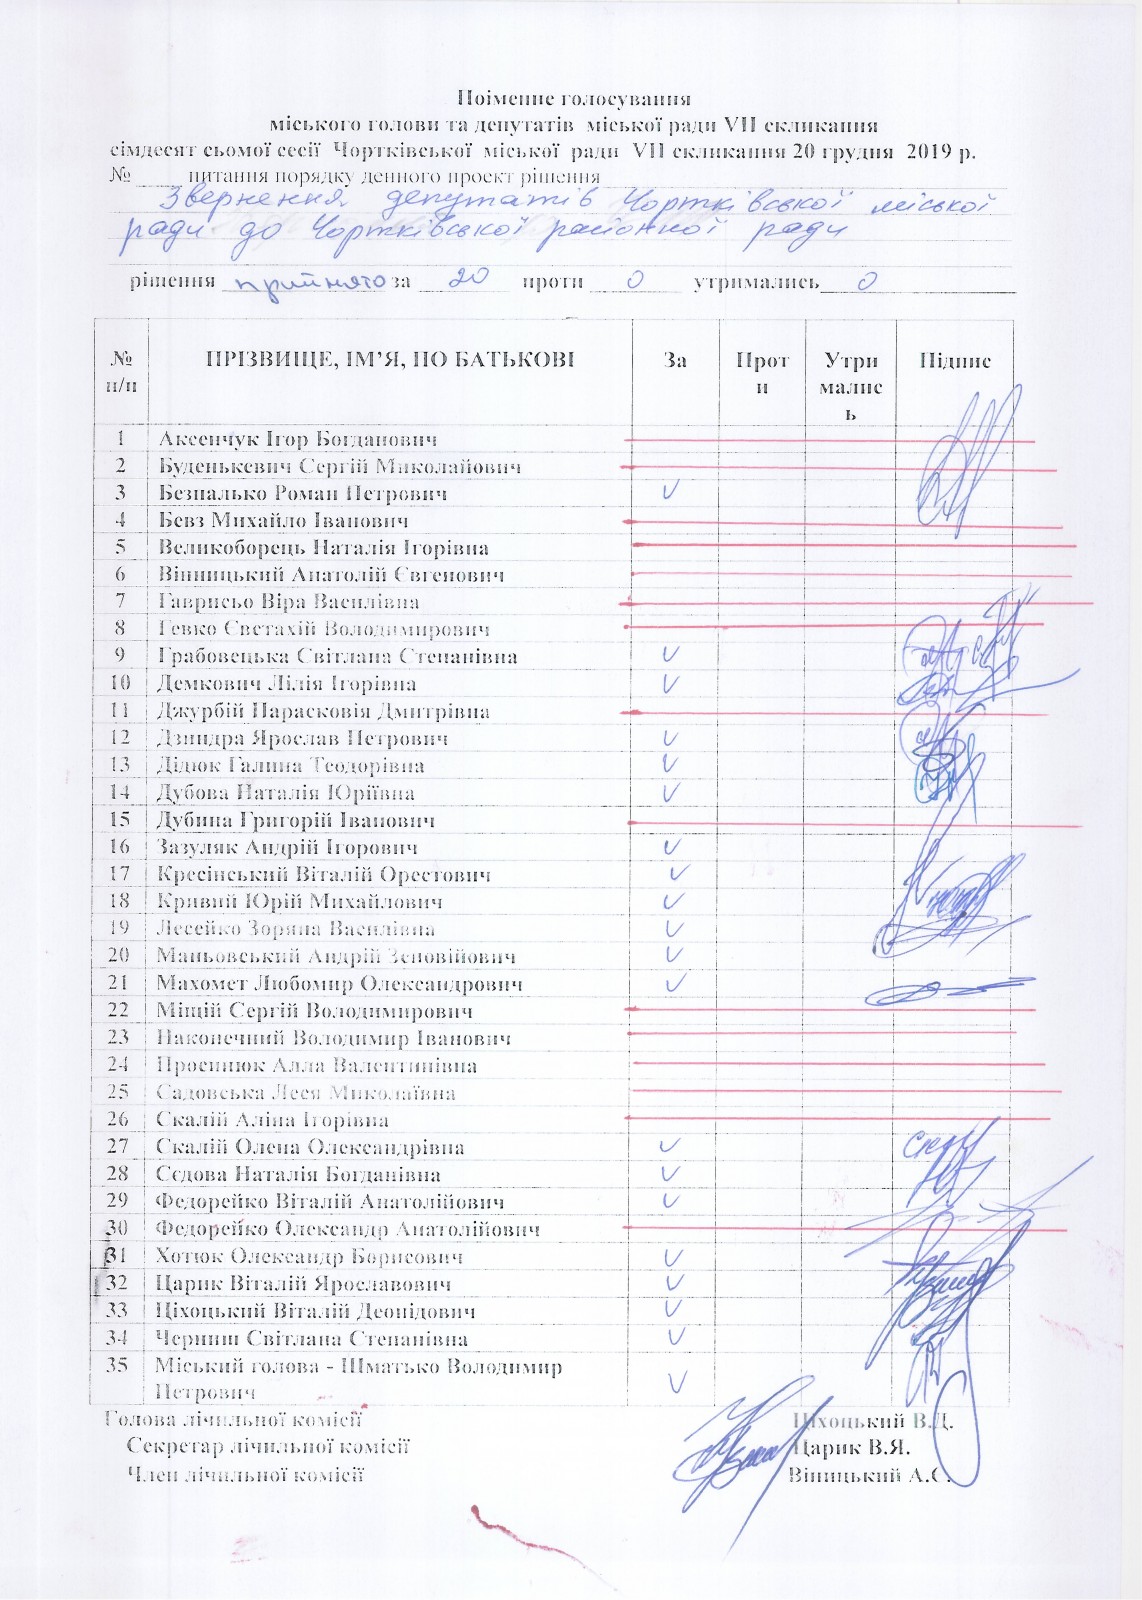 Поіменне голосування
міського голови та депутатів міської ради VII скликання
сімдесят сьомої сесії Чортківської міської ради VII скликання 20 грудня 2019 р.
№ питання порядку денного проект рішення
Звернення депутатів Чортківської міської
ради до Чортківської районної ради
рішення прийнято за 20 проти 0 утримались 0
№ п/п ПРІЗВИЩЕ, ІМ’Я, ПО БАТЬКОВІ За Проти Утримались Підпис
1 Аксенчук Ігор Богданович
2 Буденькевич Сергій Миколайович
3 Безпалько Роман Петрович V
4 Бевз Михайло Іванович
5 Великоборець Наталія Ігорівна
6 Вінницький Анатолій Євгенович
7 Гаврисьо Віра Василівна
8 Гевко Євстахій Володимирович
9 Грабовецька Світлана Степанівна V
10 Демкович Лілія Ігорівна V
11 Джурбій Парасковія Дмитрівна
12 Дзиндра Ярослав Петрович V
13 Дідюк Галина Теодорівна V
14 Дубова Наталія Юріївна V
15 Дубина Григорій Іванович
16 Зазуляк Андрій Ігорович V
17 Кресінський Віталій Орестович V
18 Кривий Юрій Михайлович V
19 Лесейко Зоряна Василівна V
20 Маньовський Андрій Зеновійович V
21 Махомет Любомир Олександрович V
22 Міщій Сергій Володимирович
23 Наконечний Володимир Іванович
24 Просинюк Алла Валентинівна
25 Садовська Леся Миколаївна
26 Скалій Аліна Ігорівна
27 Скалій Олена Олександрівна V
28 Сєдова Наталія Богданівна V
29 Федорейко Віталій Анатолійович V
30 Федорейко Олександр Анатолійович
31 Хотюк Олександр Борисович V
32 Царик Віталій Ярославович V
33 Ціхоцький Віталій Леонідович V
34 Черниш Світлана Степанівна V
35 Міський голова - Шматько Володимир
Петрович V
Голова лічильної комісії Ціхоцький В.Л.
Секретар лічильної комісії Царик В.Я.
Член лічильної комісії Вінницький А.Є.